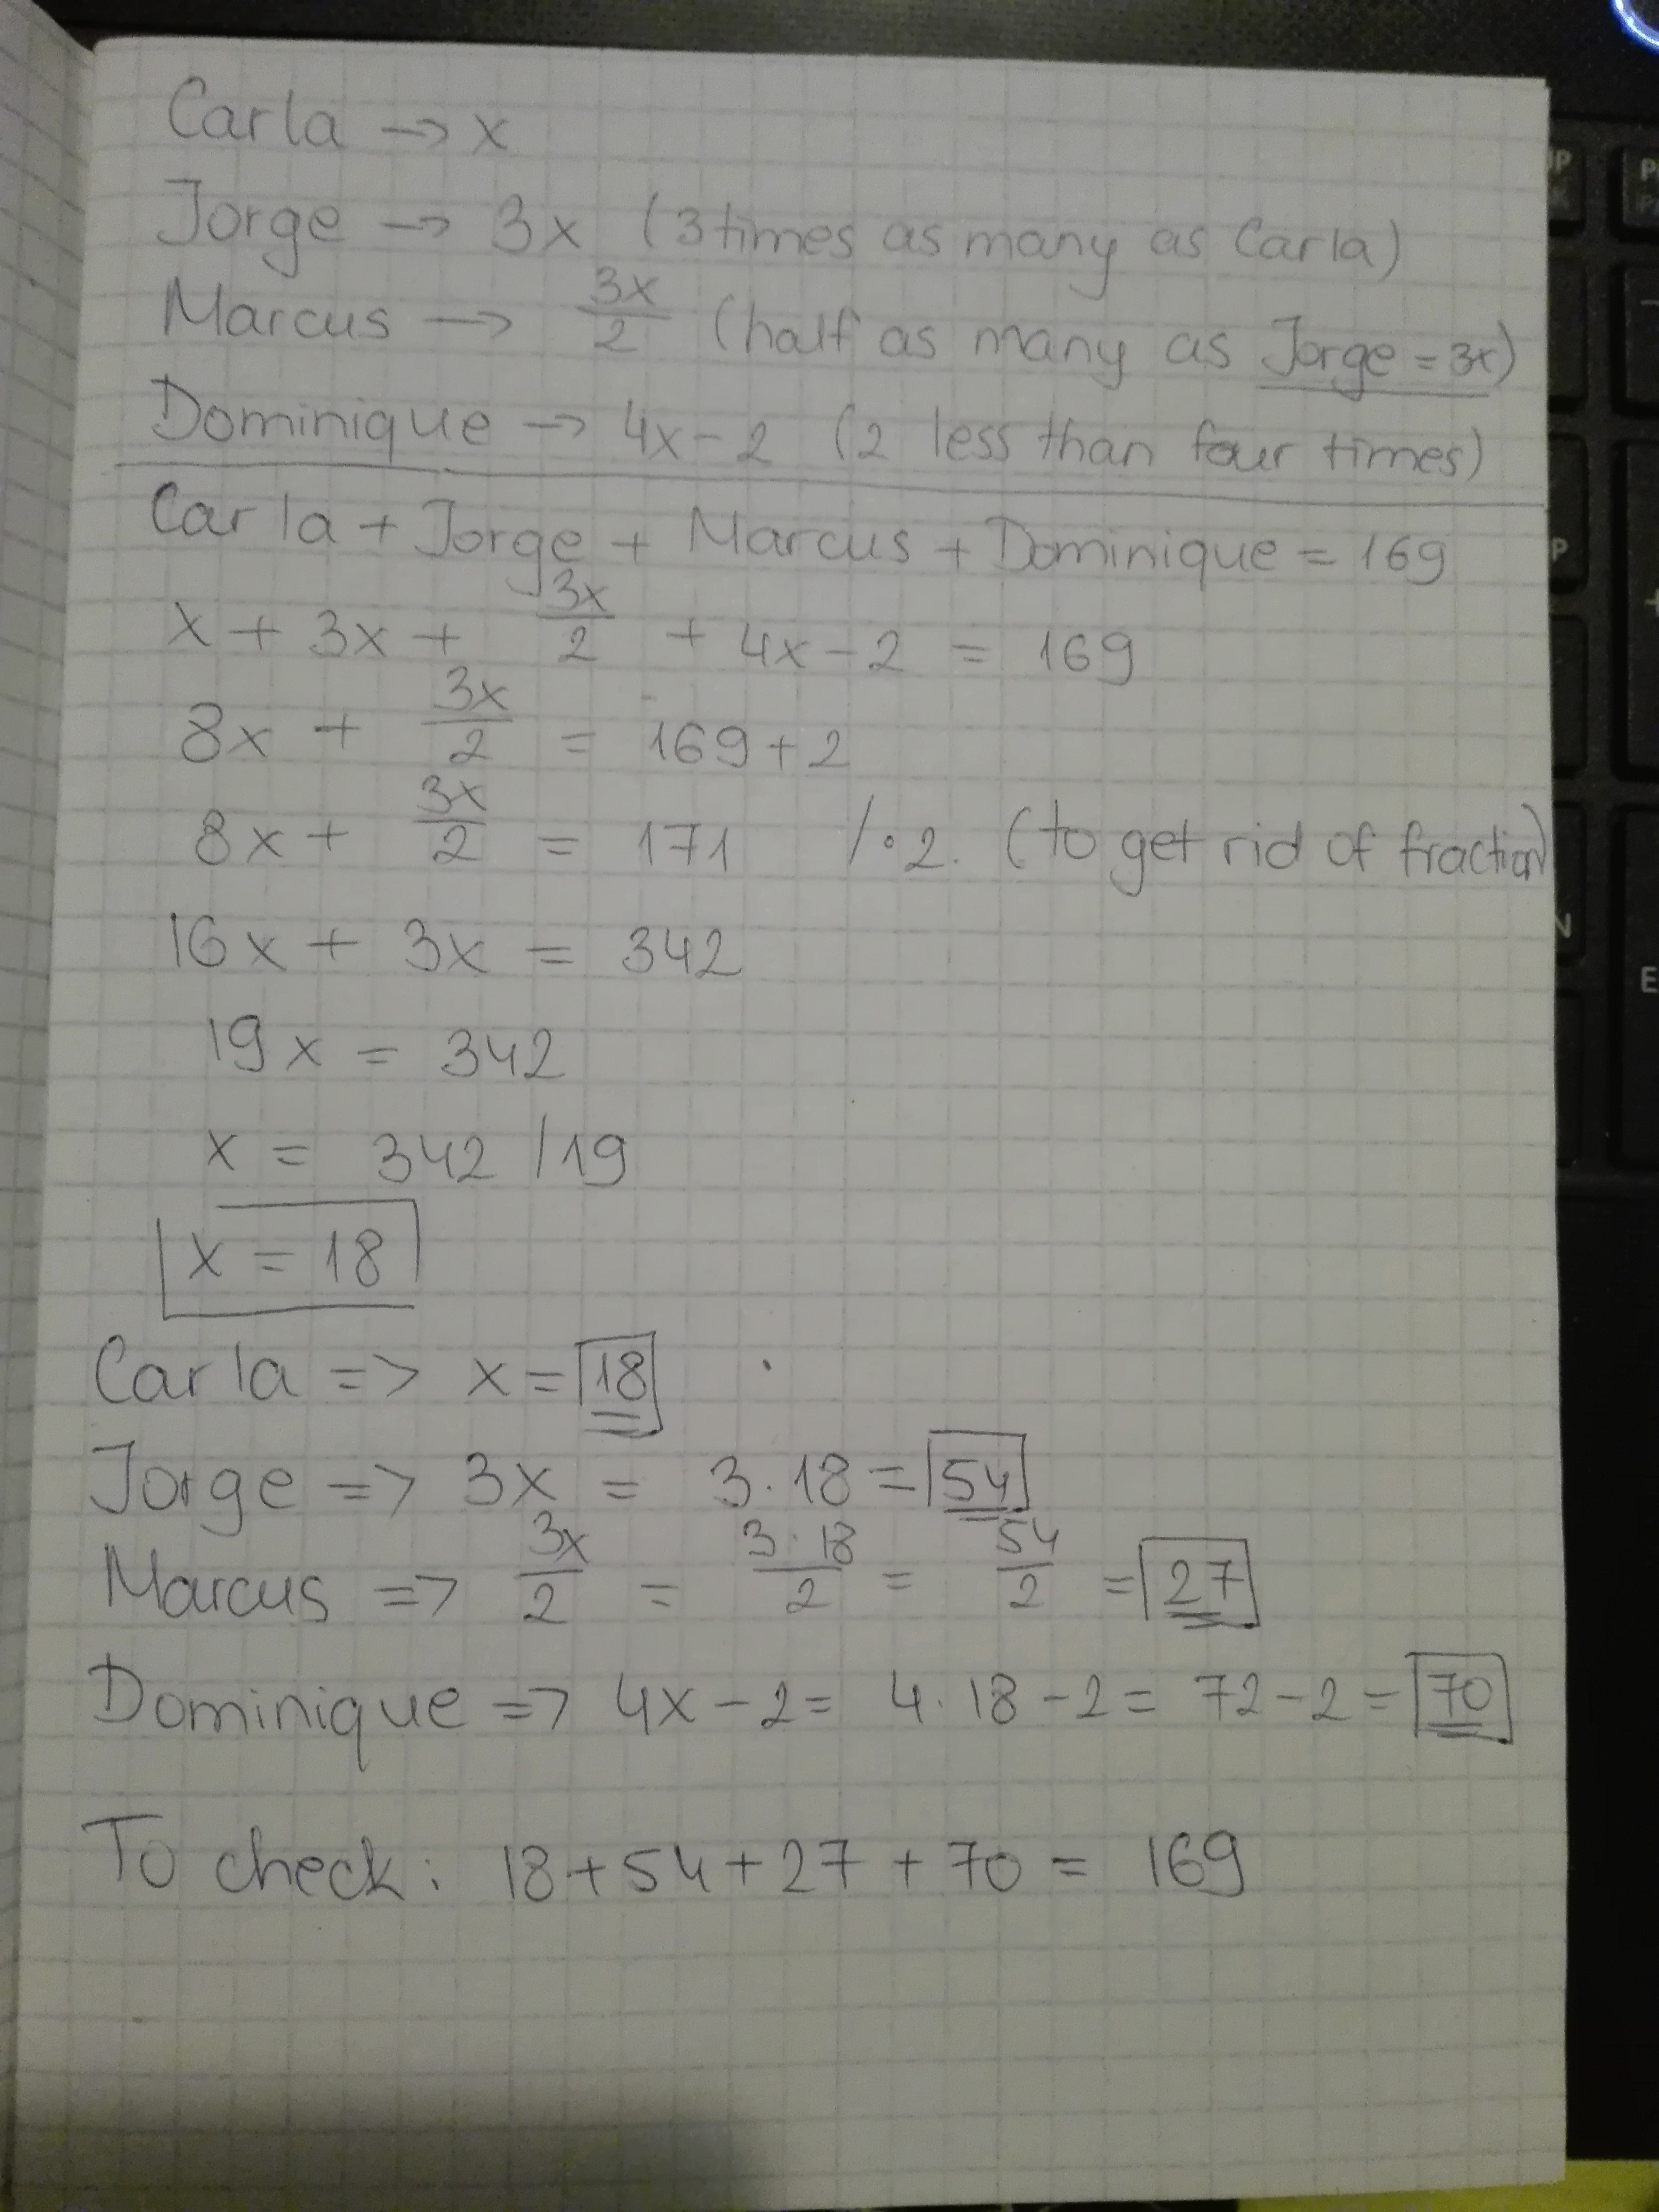 Carla → x
Jorge → 3x (3 times as many as Carla)
Marcus → 3x/2 (half as many as Jorge = 3x)
Dominique → 4x-2 (2 less than four times)
Carla + Jorge + Marcus + Dominique = 169
x + 3x + 3x/2 + 4x-2 = 169
8x + 3x/2 = 169+2
8x + 3x/2 = 171 /·2. (to get rid of fraction)
16x + 3x = 342
19x = 342
x = 342 /19
x = 18
Carla => x = 18
Jorge => 3x = 3·18 = 54
Marcus => 3x/2 = 3·18/2 = 54/2 = 27
Dominique => 4x-2 = 4·18-2 = 72-2 = 70
To check: 18+54+27+70 = 169